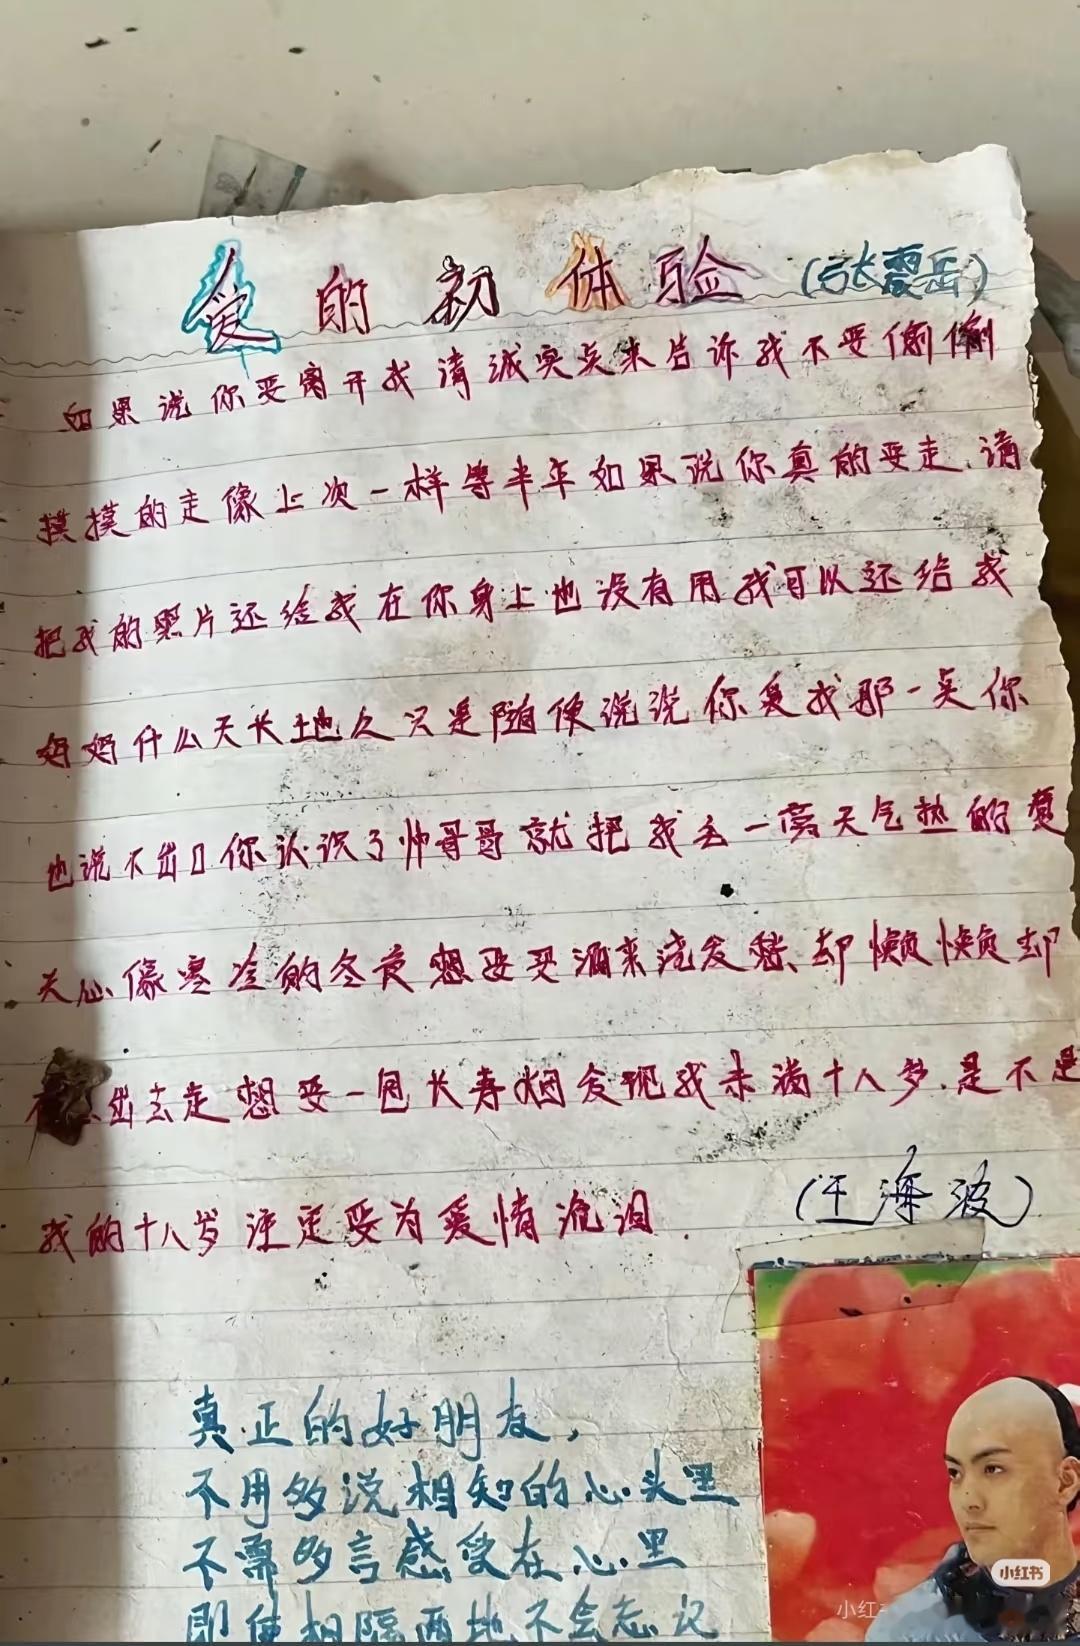 爱的初体验 (张震岳)
如果说你要离开我请诚实点来告诉我不要偷偷
摸摸的走像上次一样等半年如果说你真的要走.请
把我的照片还给我在你身上也没有用我可以还给我
好好什么天长地久只是随便说说你爱我那一点你
也说不出口你认识了帅哥哥就把我丢一旁天气热的夏
天心像寒冷的冬夜想要买酒来浇发愁却懒懒却
出去走想要一包长寿烟发现我未满十八岁.是不是
我的十八岁注定要为爱情流泪.
(王海波)
真正的好朋友,
不用多说相知的心头里
不需多言感受在心里
即使相隔两地不会忘记
小红书
小红书